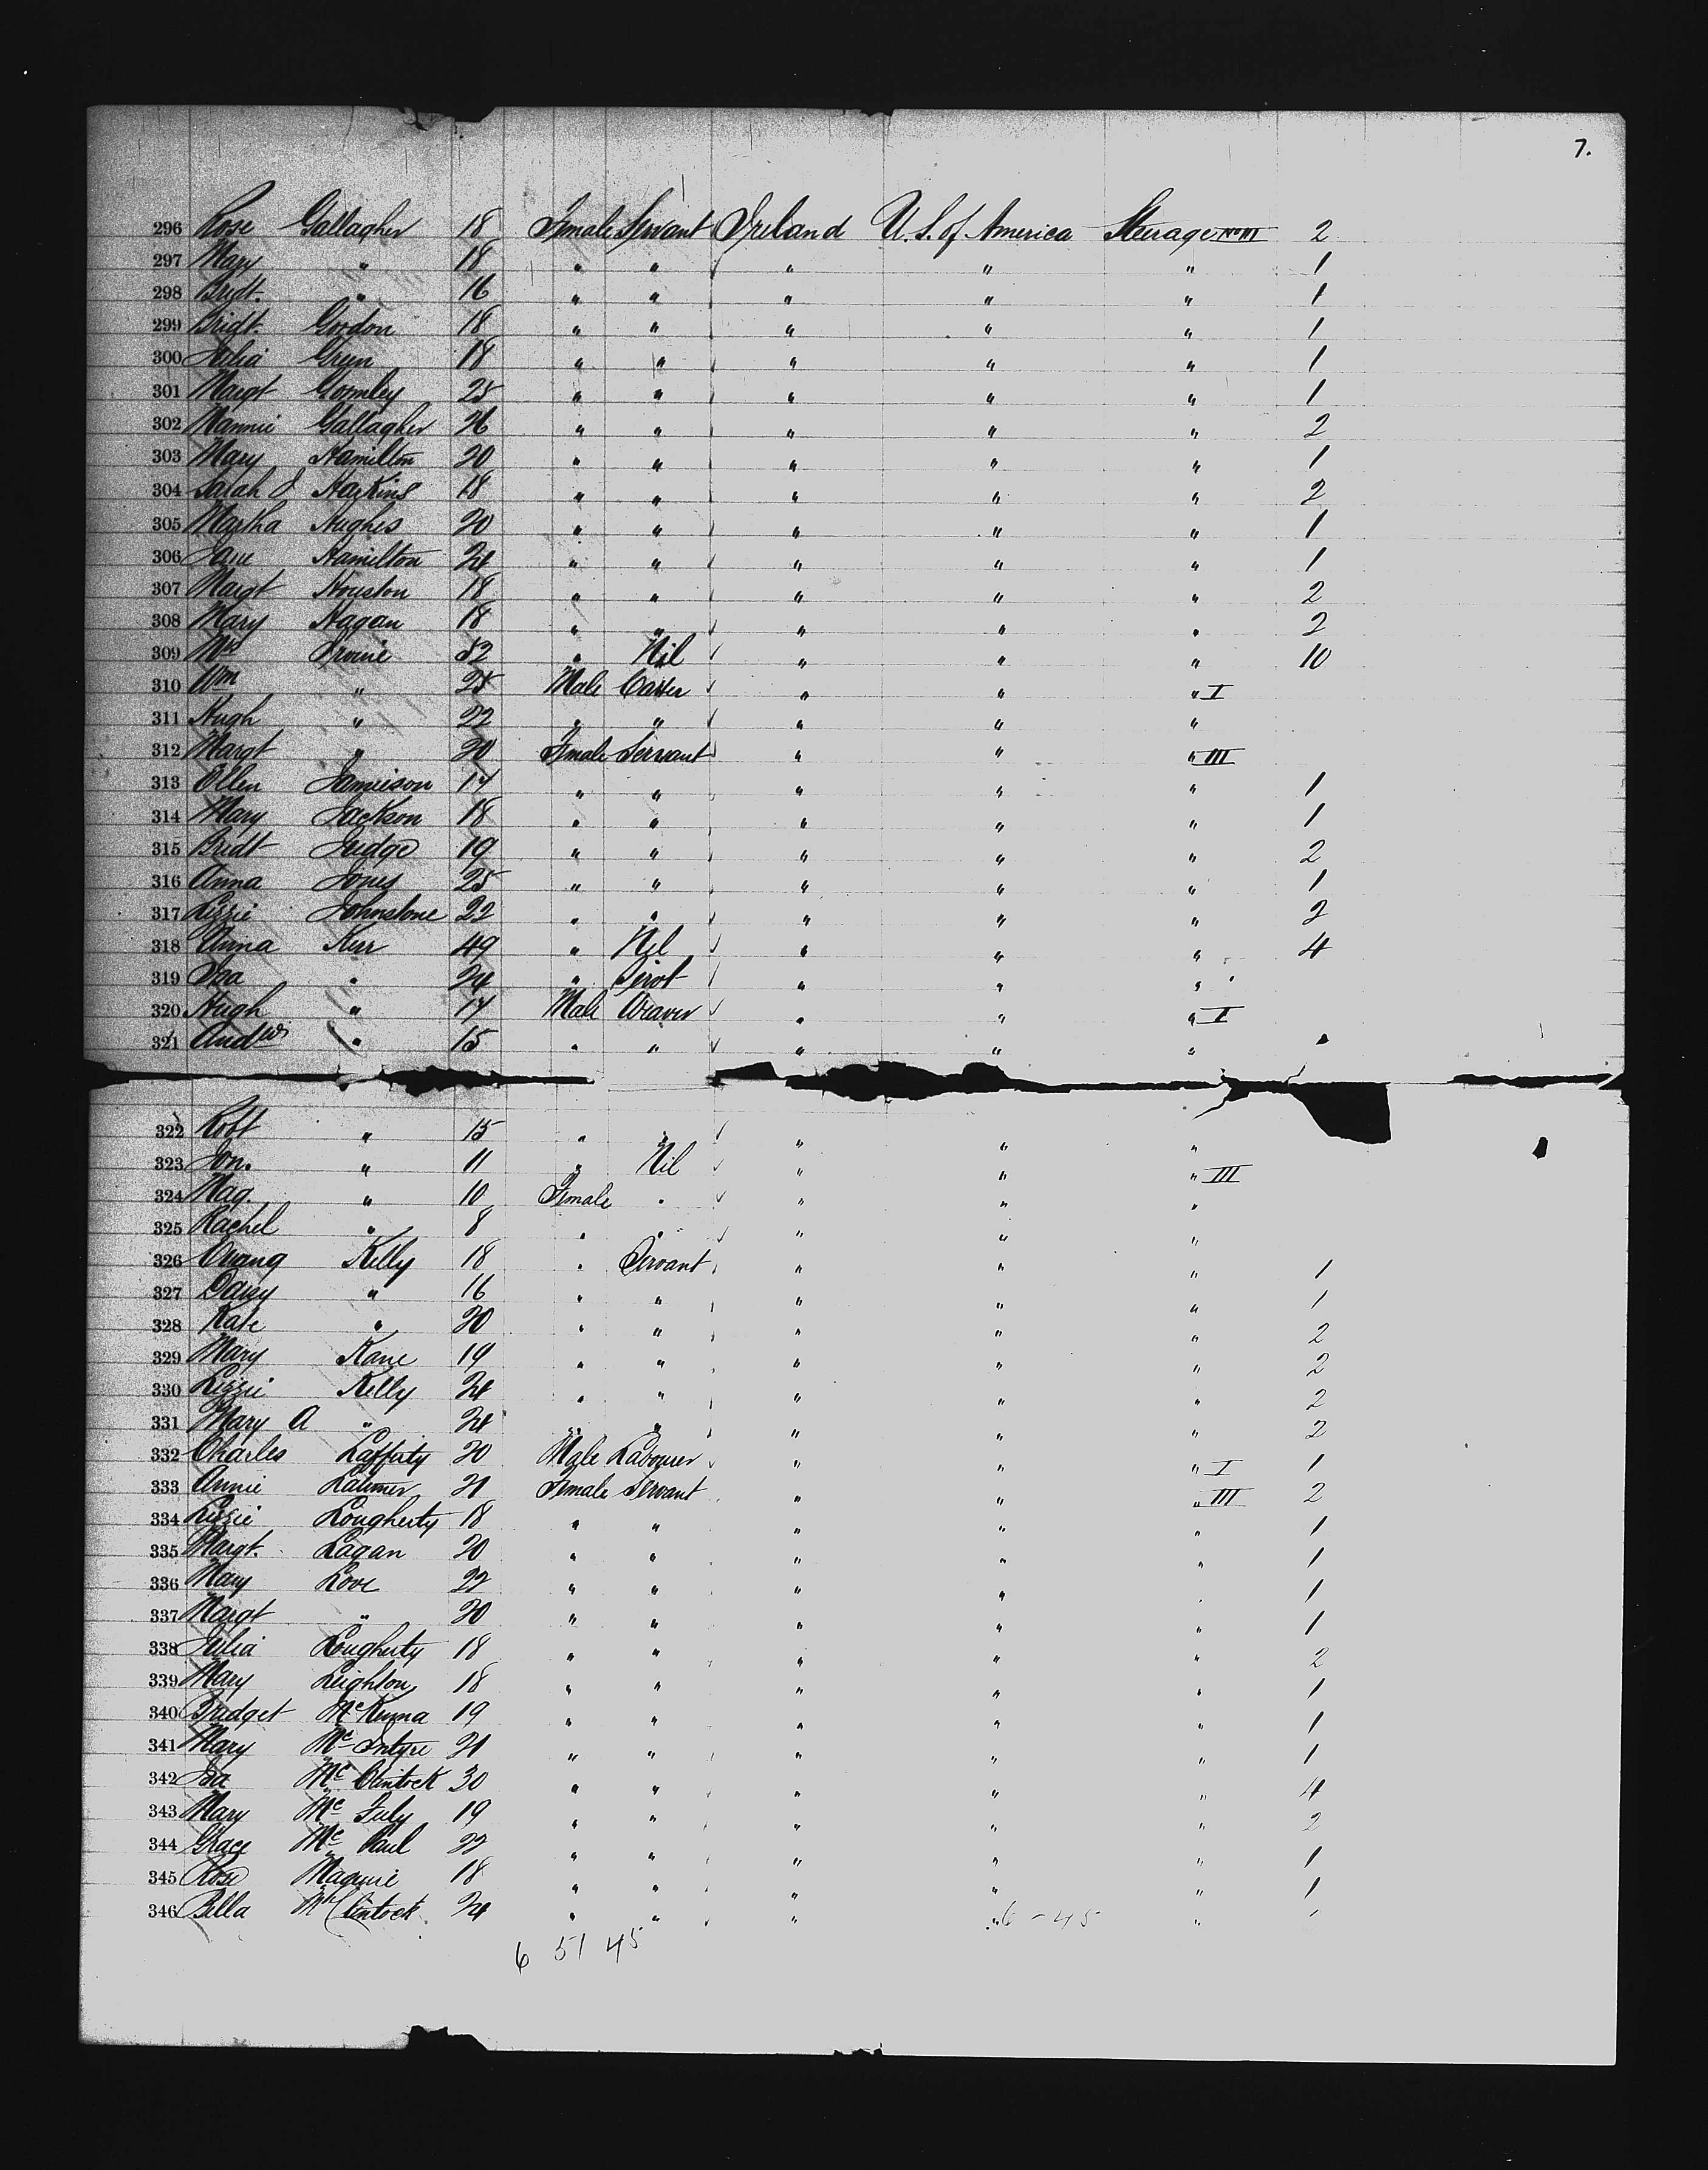 7.
296 Rose Gallagher 18 Female Servant Ireland U.S. of America Steerage No III 2
297 Mary " 18 " " " " " 1
298 Bridt. " 16 " " " " " 1
299 Bridt. Gordon 18 " " " " " 1
300 Julia Green 18 " " " " " 1
301 Margt Gormley 25 " " " " " 1
302 Mannie Gallagher 26 " " " " " 2
303 Mary Hamilton 20 " " " " " 1
304 Sarah J Harkins 18 " " " " " 2
305 Martha Hughes 20 " " " " " 1
306 Jane Hamilton 24 " " " " " 1
307 Margt Houston 18 " " " " " 2
308 Mary Hagan 18 " " " " " 2
309 Mrs Irvine 52 " Nil " " " 10
310 Wm " 25 Male Carter " " " I
311 Hugh " 22 " " " " "
312 Margt " 20 Female Servant " " " III
313 Ellen Jamieson 17 " " " " " 1
314 Mary Jackson 18 " " " " " 1
315 Bridt Judge 19 " " " " " 2
316 Anna Jones 25 " " " " " 1
317 Lizzie Johnstone 22 " " " " " 2
318 Anna Kerr 49 " Nil " " " 4
319 Isa " 24 " Servt " " "
320 Hugh " 17 Male Weaver " " " I
321 Andw " 15 " " " " "
322 Robt " 15 " " " " "
323 Jon. " 11 " Nil " " " III
324 Mag. " 10 Female " " " "
325 Rachel " 8 " " " " "
326 Kelly 18 " Servant " " " 1
327 Daisy " 16 " " " " " 1
328 Kate " 20 " " " " " 2
329 Mary Kane 19 " " " " " 2
330 Lizzie Kelly 24 " " " " " 2
331 Mary A " 24 " " " " " 2
332 Charles Lafferty 20 Male Labourer " " " I 1
333 Annie Latimer 21 Female Servant " " " III 2
334 Lizzie Lougherty 18 " " " " " 1
335 Margt. Lagan 20 " " " " " 1
336 Mary Love 22 " " " " " 1
337 Margt " 20 " " " " " 1
338 Julia Lougherty 18 " " " " " 2
339 Mary Leighton 18 " " " " " 1
340 Bridget McKenna 19 " " " " " 1
341 Mary McIntyre 21 " " " " " 1
342 Isa McClintock 30 " " " " " 4
343 Mary Mc 19 " " " " " 2
344 Grace McCaul 22 " " " " " 1
345 Rose Maguire 18 " " " " " 1
346 Bella McClintock 24 " " " " 6-45 " 1
6 51 45